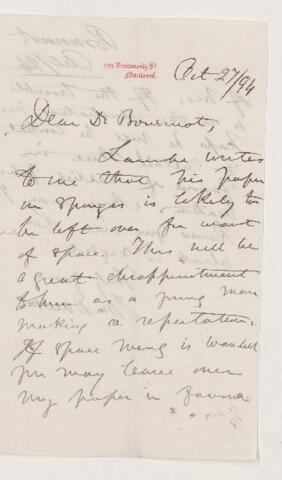 University St
Montreal
Oct 27/94
Dear Dr Bourinot,
Lambe writes
to me that his paper
on sponges is likely to
be left over for want
of space. This will be
a great disappointment
to him as a young man
making a reputation.
If space being is wanted
you may leave over
my paper in favour